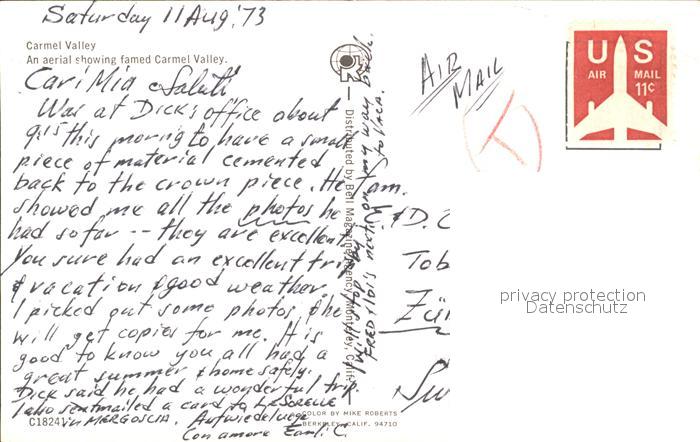 Saturday 11 Aug. '73
Carmel Valley
An aerial showing famed Carmel Valley.
Cari Mia Saluti
Was at Dick's office about
9:15 this morng to have a small
piece of material cemented
back to the crown piece. He
showed me all the photos he
had so far -- they are excellent
You sure had an excellent trip
& vacation & good weather.
I picked out some photos & he
will get copies for me. It is
good to know you all had a
great summer & home safely.
Dick said he had a wonderful trip.
I also sent mailed a card to LeSORELLE
in MERGOSCIA. Aufwiedersehn
Con amore Earl C.
C18241
Distributed by Bell Magazine Agency, Monterey, Calif.
I will stop by
FRED & Ibi's next on my way back
to Vaca.
COLOR BY MIKE ROBERTS
BERKELEY, CALIF. 94710
AIR
MAIL
T
US
AIR MAIL
11¢
am.
E. & D. C
Tob
Zür
privacy protection
Datenschutz